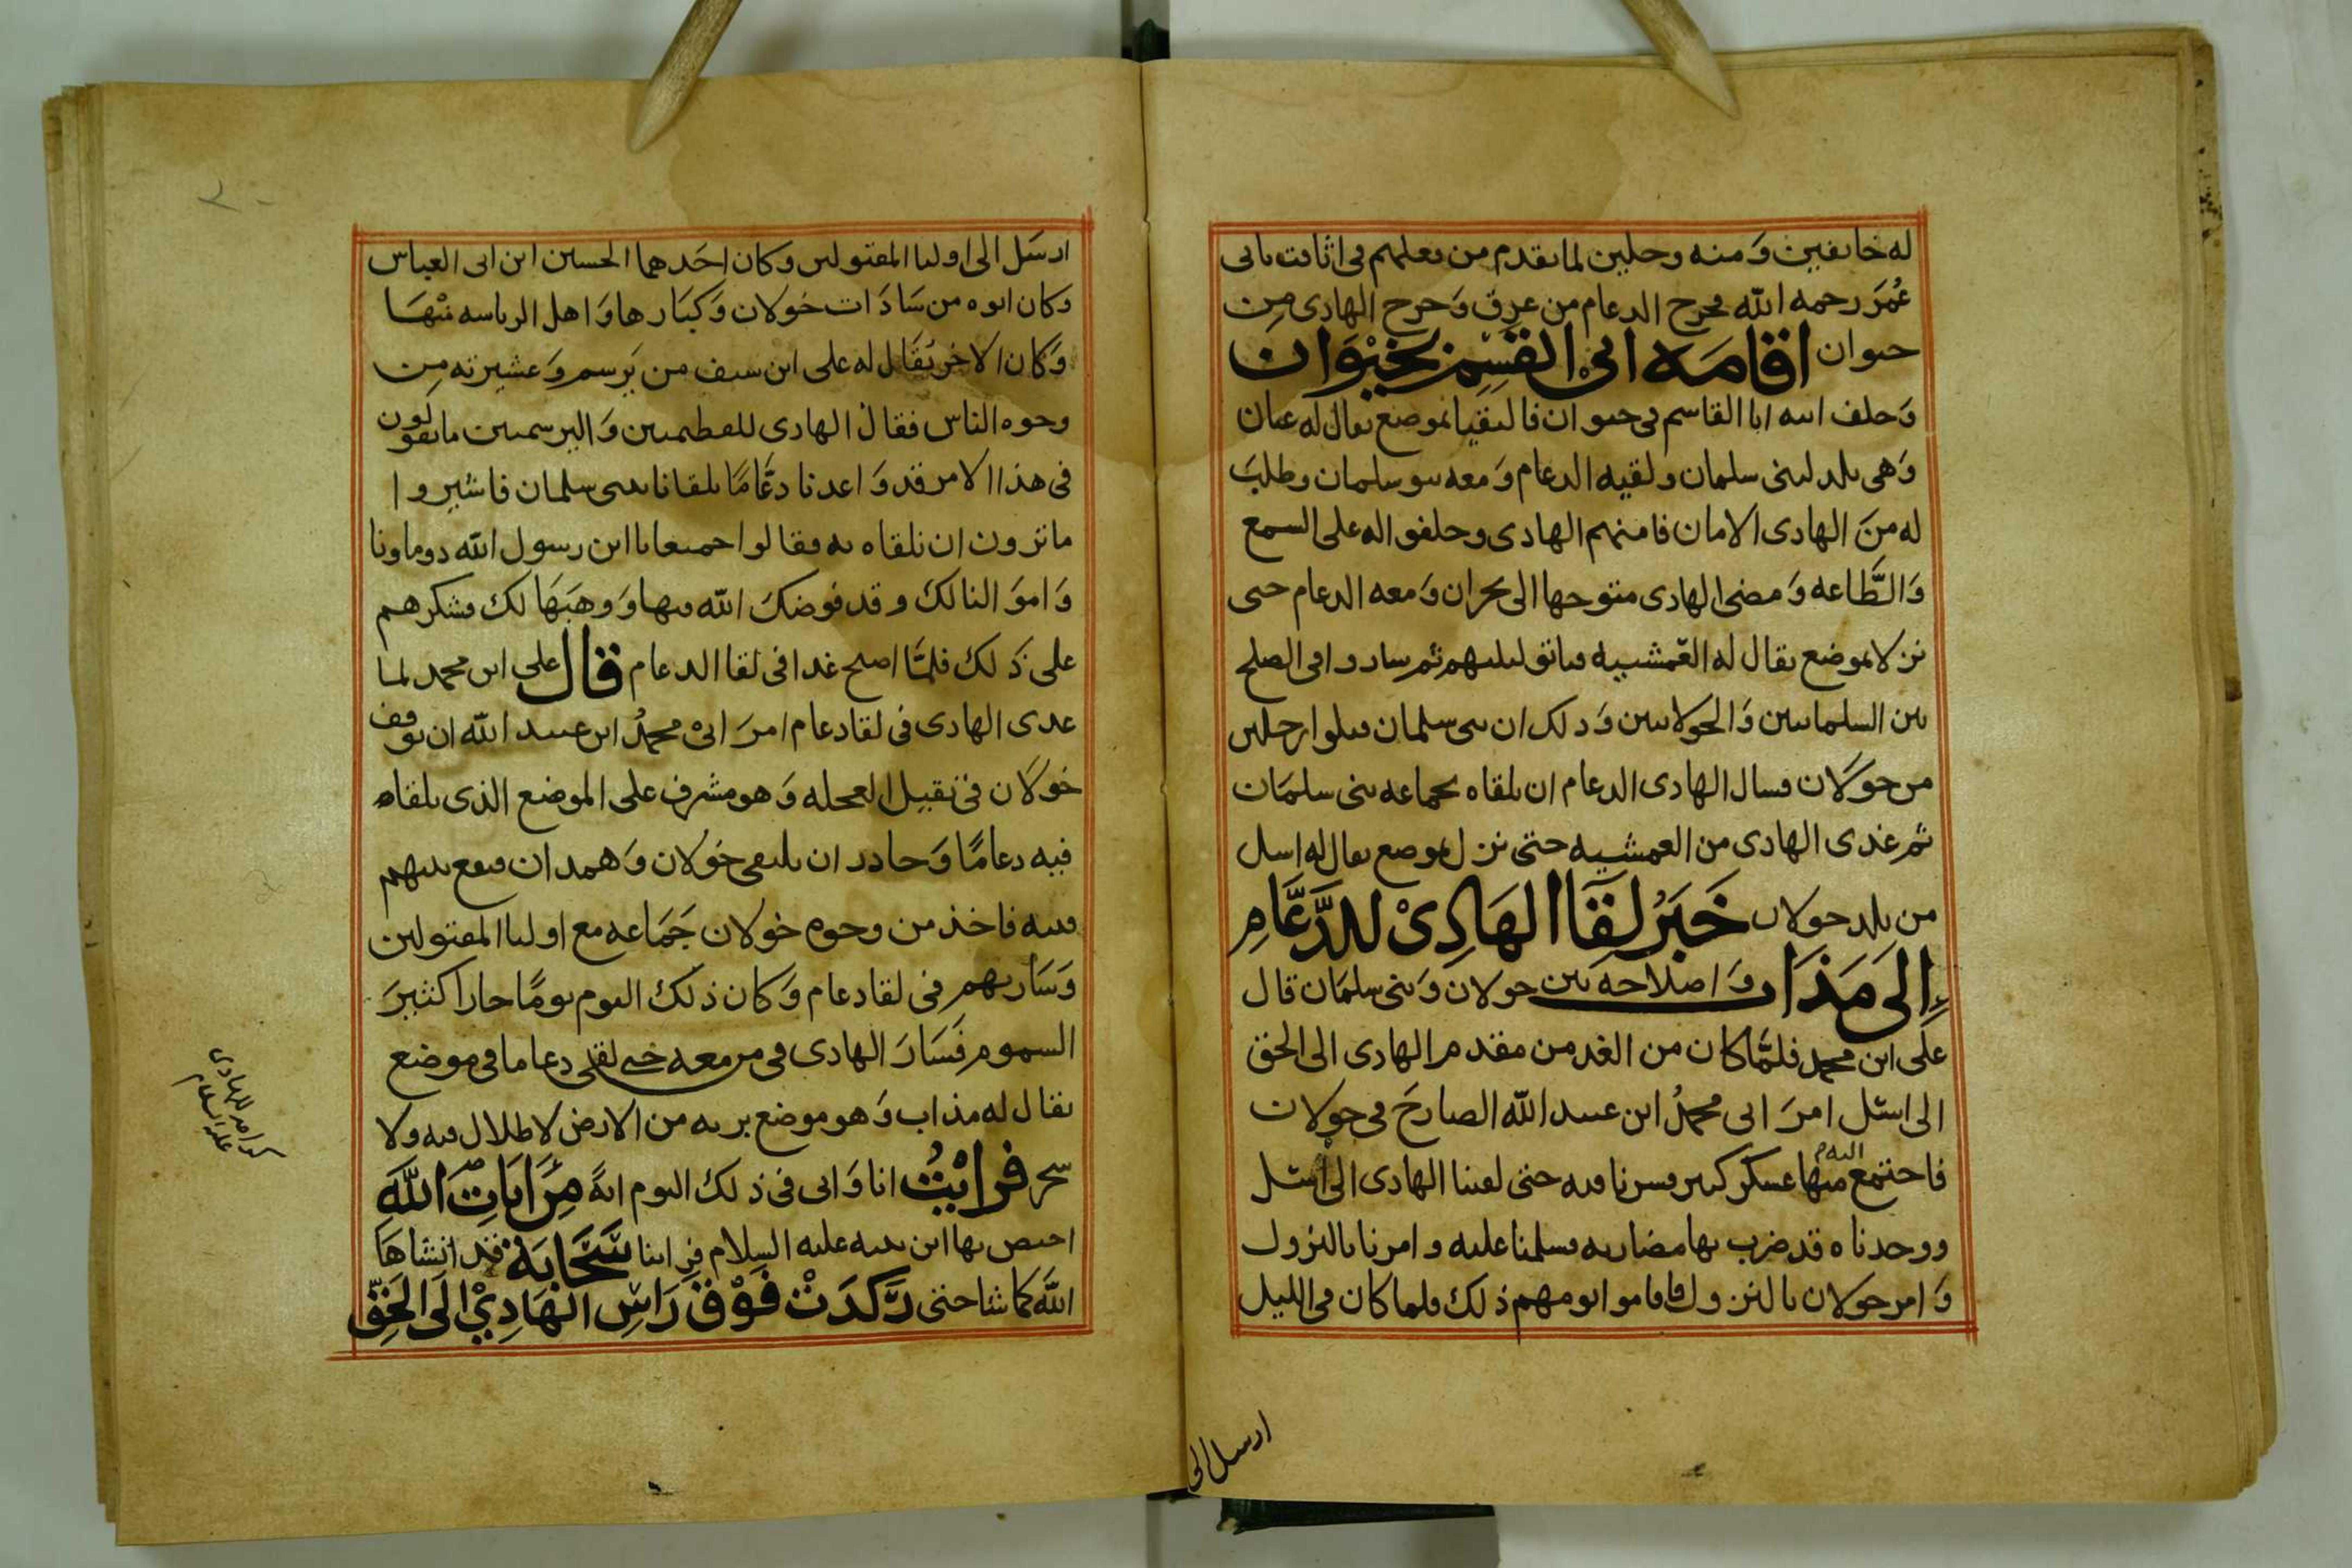 له خايفين وَمنه وجلين لما تقدم من فعلهم فى اثافت بابى
عُمَرَ رحمه الله فخرج الدعام من عرِق وَخرج الهادى من
خيوان اقامَه ابىْ القسِم بخيْوَان
وَخلف ابنه ابا القاسم فى خيوان فالتقيا بموضع يقال له عيان
وَهى بلد لبنى سلمان ولقيه الدعام وَمعه بنو سلمان وطلبَ
له منَ الهادى الامان فامنهم الهادى وحلفوا له على السمع
وَالطَّاعه وَمضى الهادى متوجها الى نجران وَمعه الدعام حتى
نزلا بموضع يقال له العَمشيه فباتو ليلتهم ثم ساروا فى الصلح
بين السلمانيين وَالخولانيين وَذلك ان بنى سلمان قتلوا رجلين
من خوَلان فسال الهادى الدعام ان يلقاه بجماعه بنى سلمَان
ثم غدى الهادى من العمشيه حتى نزل بموضع يقال له اسل
من بلد خولان خَبَرُ لقَا الهَادِىْ للدَّعَّامِ
إِلى مَذَاب وَاصلاحه بين خولان وَبنى سلمَان قال
على ابن محمد فلمَّا كان من الغد من مقدم الهادى الى الحق
الى اسل امرَ ابى محمدُ ابن عبيد الله الصارخَ فى خولان
فاجتمع اليهم منها عسكر كبير فسرنا فيه حتى لقينا الهادى الى اسل
ووجدناه قد ضرب بها مضاربه فسلمنا عليه وامرنا بالنزول
وَامر خولان بالنزول فاقاموا يومهم ذلك فلما كان فى الليل
ارسل الى
ارسَل الى اوليا المقتولين وكان احَدهما الحسين ابن ابى العباس
وكان ابوه من سَادَات خولان وَكبَارها وَاهل الرياسه منْهَا
وَكان الاخر يقَال له على ابن سيف من يَرسم وَعشيرته من
وجوه الناس فقال الهادى للفطيميين وَاليرسميين ما تقولون
فى هذا الامر قد وَاعدنا دعَّامًا يلقانا ببنى سلمان فاشيروا
ما ترون ان نلقاه به فقالوا جميعا يا ابن رسول الله دوماونا
وَاموَالنا لك وقد فوضكَ الله فيها وَوهبَهَا لك فشكرهم
على ذَلك فلمَّا اصبح غدا فى لقا الدعام قال على ابن محمد لما
غدى الهادى فى لقا دعام امرَ ابىْ محمدُ ابن عبيد الله ان يوقف
خوَلان فى نقيل العجله وَهو مشرف على الموضع الذى يلقاه
فيه دعامًا وَحاذر ان يلتقى خولان وَهمدان فيقع بينهم
فتنه فاخذ من وجوه خولان جَمَاعه مع اوليا المقتولين
وَسَار بهم فى لقا دعام وَكان ذلك اليوم يومًا حارا كثيرَ
السموم فَسَارَ الهادى فى من معه حتى لقى دعاما فى موضع
يقال له مذاب وَهو موضع بريه من الارض لا ظلال فيه ولا
شجر فرايْتُ انا وَابى فى ذلك اليوم ايةً مِن ايَاتِ اللهَ
اختص بها ابن نبيه عليه السلام فراينا سَحَّابَة قد انشاهَا
اللهَ كما شا حتى رَّكدَتْ فَوْقَ رَاسِ الهَادِيْ الَى الحَقّ
كرامه للهادى
عليه السلام